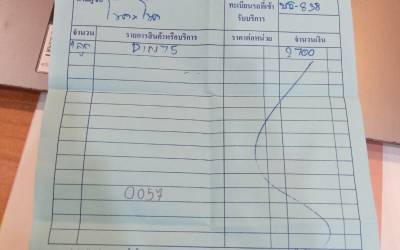 ทะเบียนรถที่เข้า
รับบริการ
จำนวน รายการสินค้าหรือบริการ ราคาต่อหน่วย จำนวนเงิน
1 ลูก DIN75 2700
0057